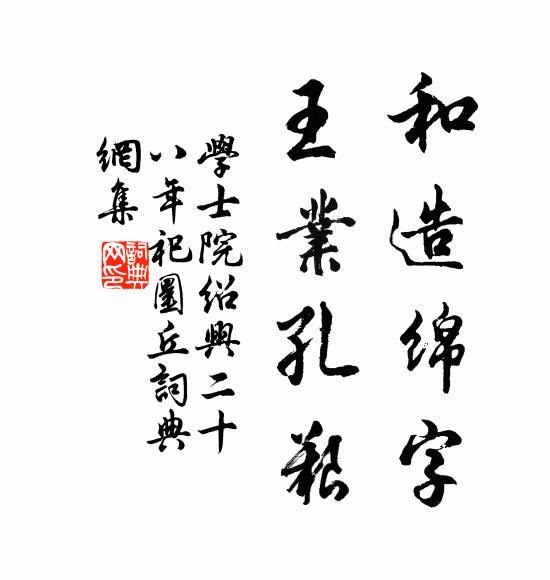 和造绵字
王業孔艱
學士院紹興二十
八年祀圜丘詞典
網集
詞典網印